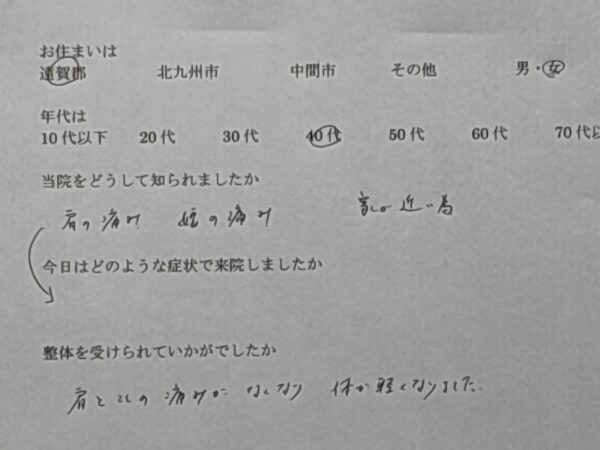 お住まいは
遠賀郡 北九州市 中間市 その他 男・女
年代は
10代以下 20代 30代 40代 50代 60代 70代以
当院をどうして知られましたか
肩の痛み の痛み 家が近い為
今日はどのような症状で来院しましたか
整体を受けられていかがでしたか
肩とこしの痛みがなくなり 体が軽くなりました。